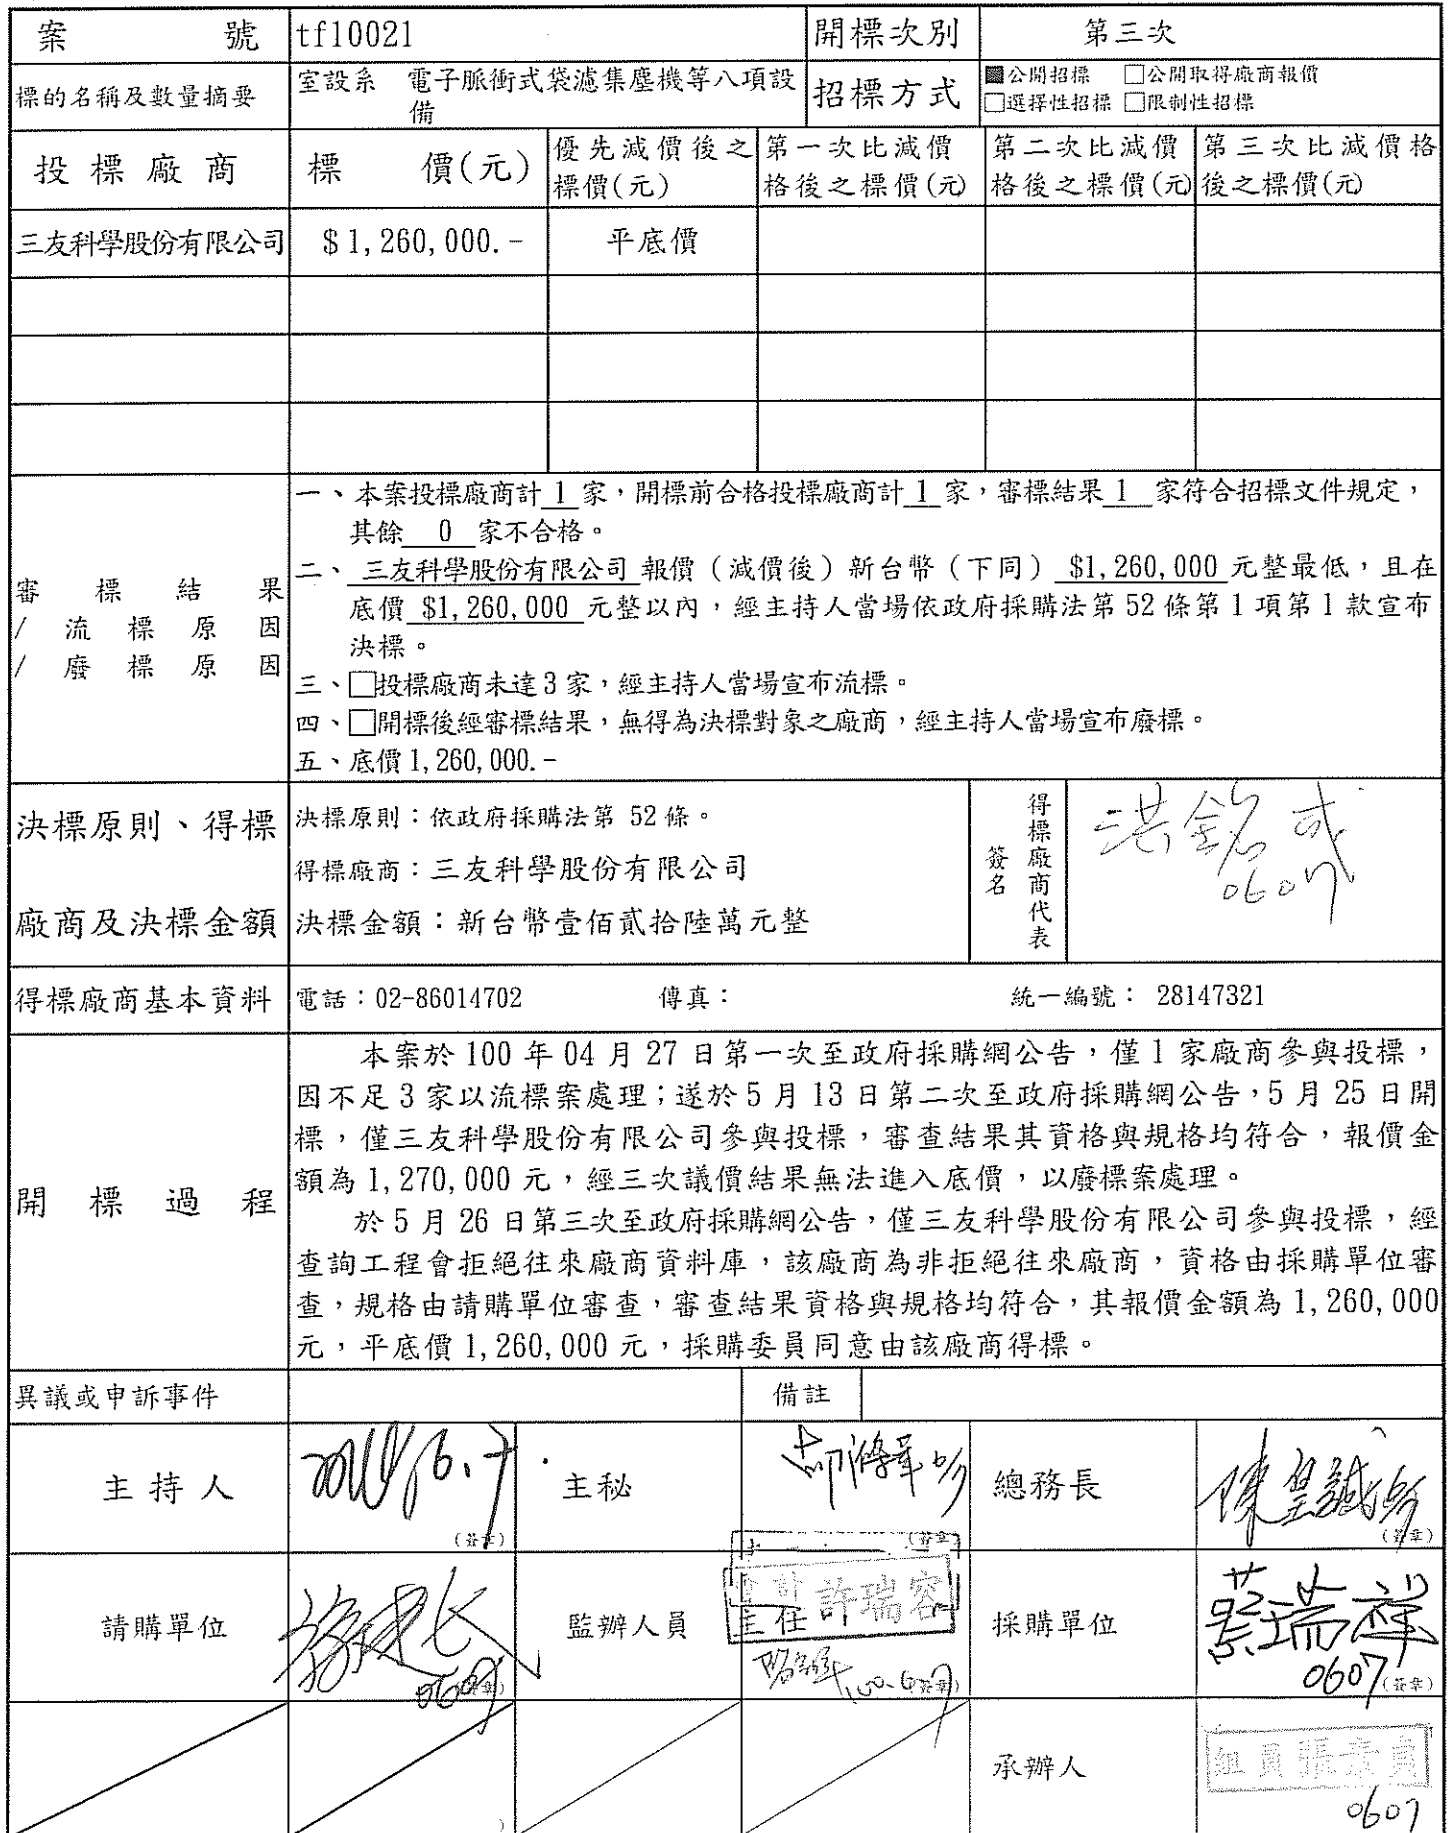 案 號 tf10021 開標次別 第三次
標的名稱及數量摘要 室設系 電子脈衝式袋濾集塵機等八項設備 招標方式 ■公開招標 □公開取得廠商報價
□選擇性招標 □限制性招標
投標廠商 標 價(元) 優先減價後之標價(元) 第一次比減價格後之標價(元) 第二次比減價格後之標價(元) 第三次比減價格後之標價(元)
三友科學股份有限公司 $1,260,000.- 平底價
審標結果
/流標原因
/廢標原因
一、本案投標廠商計 1 家，開標前合格投標廠商計 1 家，審標結果 1 家符合招標文件規定，
其餘 0 家不合格。
二、三友科學股份有限公司 報價（減價後）新台幣（下同） $1,260,000 元整最低，且在
底價 $1,260,000 元整以內，經主持人當場依政府採購法第 52 條第 1 項第 1 款宣布
決標。
三、□投標廠商未達 3 家，經主持人當場宣布流標。
四、□開標後經審標結果，無得為決標對象之廠商，經主持人當場宣布廢標。
五、底價 1,260,000.-
決標原則、得標
廠商及決標金額
決標原則：依政府採購法第 52 條。
得標廠商：三友科學股份有限公司
決標金額：新台幣壹佰貳拾陸萬元整
得標廠商代表
簽名
洪銘
0607
得標廠商基本資料 電話：02-86014702 傳真： 統一編號： 28147321
開標過程
本案於 100 年 04 月 27 日第一次至政府採購網公告，僅 1 家廠商參與投標，
因不足 3 家以流標案處理；遂於 5 月 13 日第二次至政府採購網公告，5 月 25 日開
標，僅三友科學股份有限公司參與投標，審查結果其資格與規格均符合，報價金
額為 1,270,000 元，經三次議價結果無法進入底價，以廢標案處理。
於 5 月 26 日第三次至政府採購網公告，僅三友科學股份有限公司參與投標，經
查詢工程會拒絕往來廠商資料庫，該廠商為非拒絕往來廠商，資格由採購單位審
查，規格由請購單位審查，審查結果資格與規格均符合，其報價金額為 1,260,000
元，平底價 1,260,000 元，採購委員同意由該廠商得標。
異議或申訴事件 備註
主持人 (簽章) 主秘 (簽章) 總務長 陳皇誠 (簽章)
請購單位 0607 (簽章) 監辦人員 會計主任 許瑞容 100.6.7 (簽章) 採購單位 蔡瑞祥 0607 (簽章)
承辦人 組員張素貞
0607